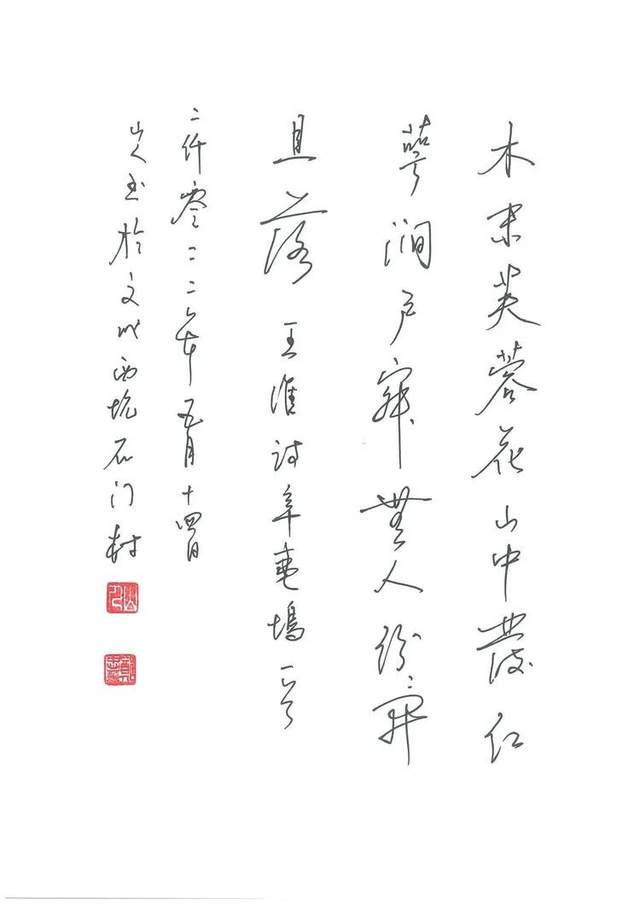 木末芙蓉花山中發红
萼涧户寂無人纷纷开
且落 王维诗辛夷塢一首
二仟零二二年五月十四日
山人书於文成西坑石门村